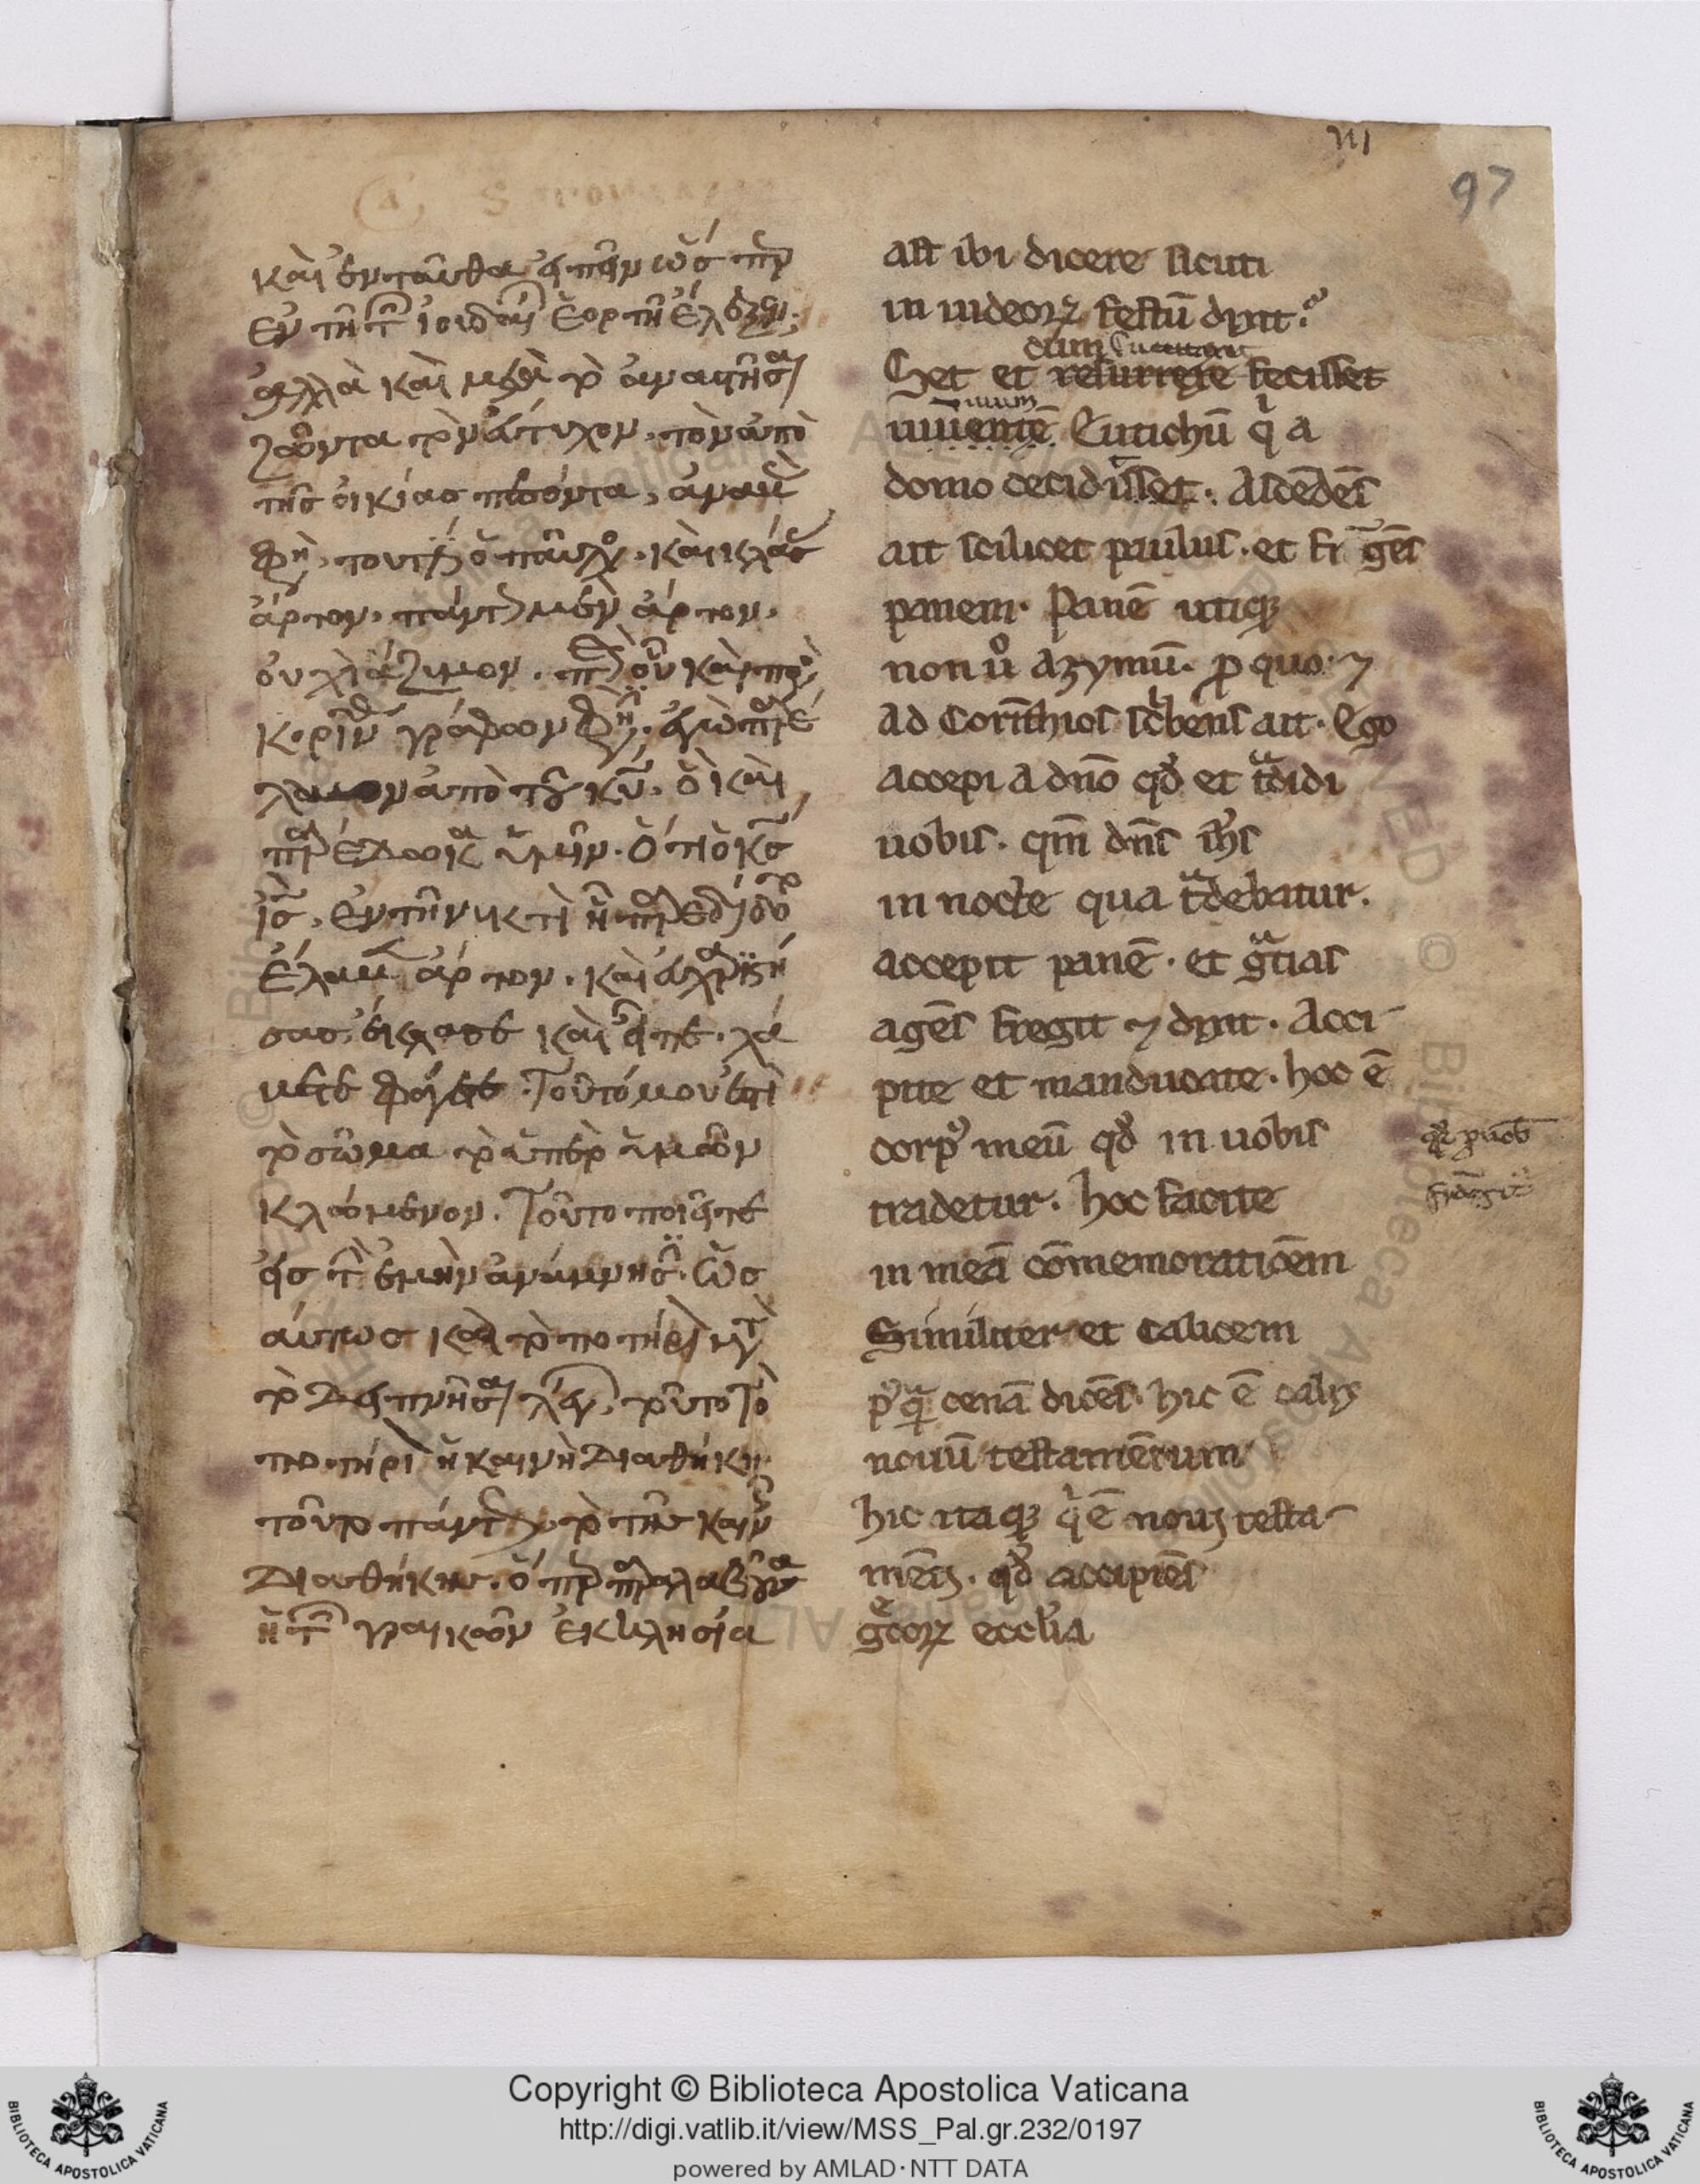 VII
97
καὶ ἐνταῦθα εἰπεῖν ὥσπερ
ἐν τῇ τῶν ἰουδαίων ἑορτῇ
ἀλλὰ καὶ μετὰ τὸ ἀναστῆσαι
ζῶντα τὸν εὔτυχον, τὸν ἀπὸ
τῆς οἰκίας πεσόντα, ἀναβὰς
φησὶ, τουτέστιν ὁ παῦλος. καὶ κλάσας
ἄρτον. πάντως μὲν ἄρτον.
οὐχὶ ἄζυμον. περὶ οὗ καὶ πρὸς
κορινθίους γράφων φησίν. ἐγὼ παρέ
λαβον ἀπὸ τοῦ κυ. ὃ καὶ
παρέδωκα ὑμῖν. ὅτι ὁ κς
ις, ἐν τῇ νυκτὶ ἧ παρεδίδοτο
ἔλαβεν ἄρτον. καὶ εὐχαριστή
σας ἔκλασε καὶ εἶπε. λά
βετε φάγετε. Τοῦτό μου ἐστὶ
τὸ σῶμα τὸ ὑπὲρ ὑμῶν
κλώμενον. Τοῦτο ποιεῖτε
εἰς τὴν ἐμὴν ἀνάμνησιν. ὡς
αύτως καὶ τὸ ποτήριον μετὰ
τὸ δειπνῆσαι λέγων, τοῦτο τὸ
ποτήριον ἡ καινὴ διαθήκη
τοῦτο πάντως τὸ τὴν καινὴν
διαθήκην. ὅπερ παραλαβοῦσα
ἡ τῶν γραικῶν ἐκκλησία
aſt ibi dicere ſicuti
in iudeoꝝ feſtū dixit.
Set et reſurrexe feciſſet
cum
uiuentē Eutichū qͥ a
domo cecidiſſet. Aſcēdēſ
ait ſcilicet pauluſ. et frāgēſ
panem. Panē utiqꝫ
non uͦ azymū. ꝓ quo ⁊
ad Corīthioſ ſcͥbenſ ait. Ego
accepi a dn̄o qd̓ et tͣdidi
uobiſ. qm̄ dn̄ſ ih̓ſ
in nocte qua tͣdebatur.
accepit panē. et gͣtiaſ
agēſ fregit ⁊ dixit. Acci-
pite et manducate. hoc ē
corpꝰ meū qd̓ in uobiſ
tradetur. hoc facite
in meā cōmemoratiōem
Similiter et calicem
pꝰqͣ cenā dicēſ. hic ē calix
nouū teſtamētum
hic itaqꝫ qͥ ē nouꝫ teſta-
mētꝫ. qd̓ accipiēſ
gͤcoꝝ eccl̓ia
Copyright © Biblioteca Apostolica Vaticana
http://digi.vatlib.it/view/MSS_Pal.gr.232/0197
powered by AMLAD·NTT DATA
BIBLIOTECA APOSTOLICA VATICANA
BIBLIOTECA APOSTOLICA VATICANA